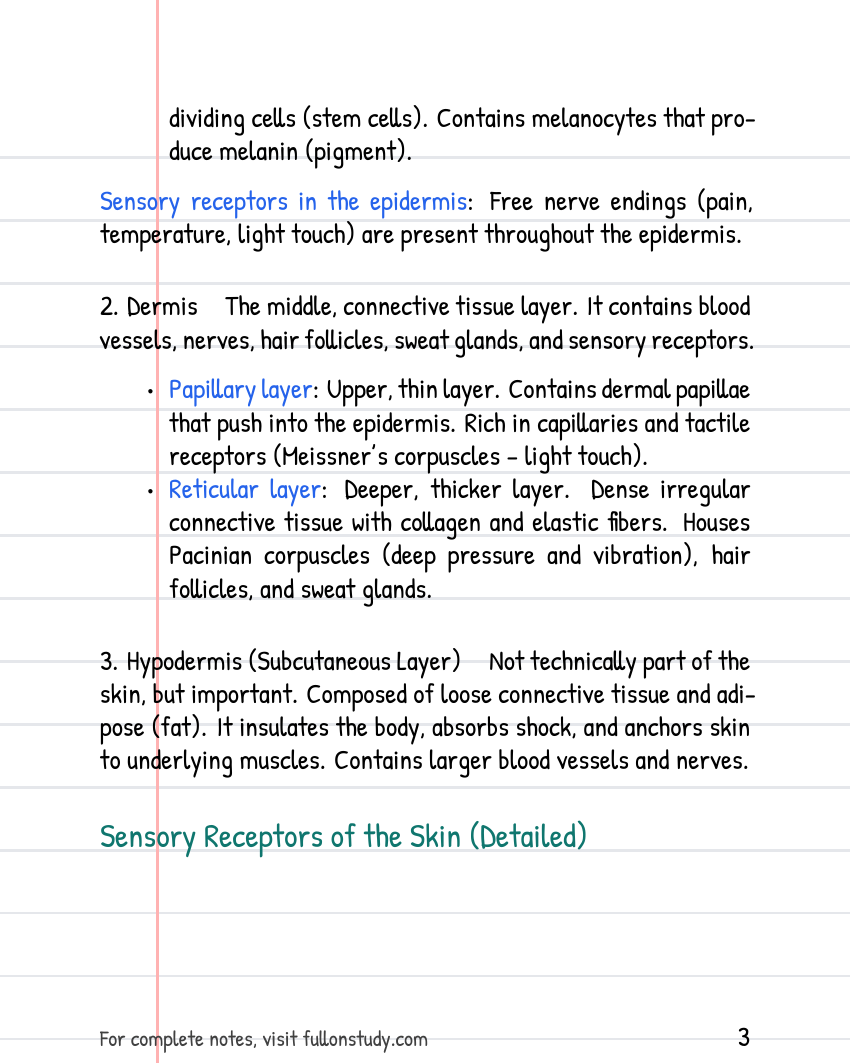 dividing cells (stem cells). Contains melanocytes that pro-
duce melanin (pigment).
Sensory receptors in the epidermis: Free nerve endings (pain,
temperature, light touch) are present throughout the epidermis.
2. Dermis The middle, connective tissue layer. It contains blood
vessels, nerves, hair follicles, sweat glands, and sensory receptors.
• Papillary layer: Upper, thin layer. Contains dermal papillae
that push into the epidermis. Rich in capillaries and tactile
receptors (Meissner's corpuscles – light touch).
• Reticular layer: Deeper, thicker layer. Dense irregular
connective tissue with collagen and elastic fibers. Houses
Pacinian corpuscles (deep pressure and vibration), hair
follicles, and sweat glands.
3. Hypodermis (Subcutaneous Layer) Not technically part of the
skin, but important. Composed of loose connective tissue and adi-
pose (fat). It insulates the body, absorbs shock, and anchors skin
to underlying muscles. Contains larger blood vessels and nerves.
Sensory Receptors of the Skin (Detailed)
For complete notes, visit fullonstudy.com 3